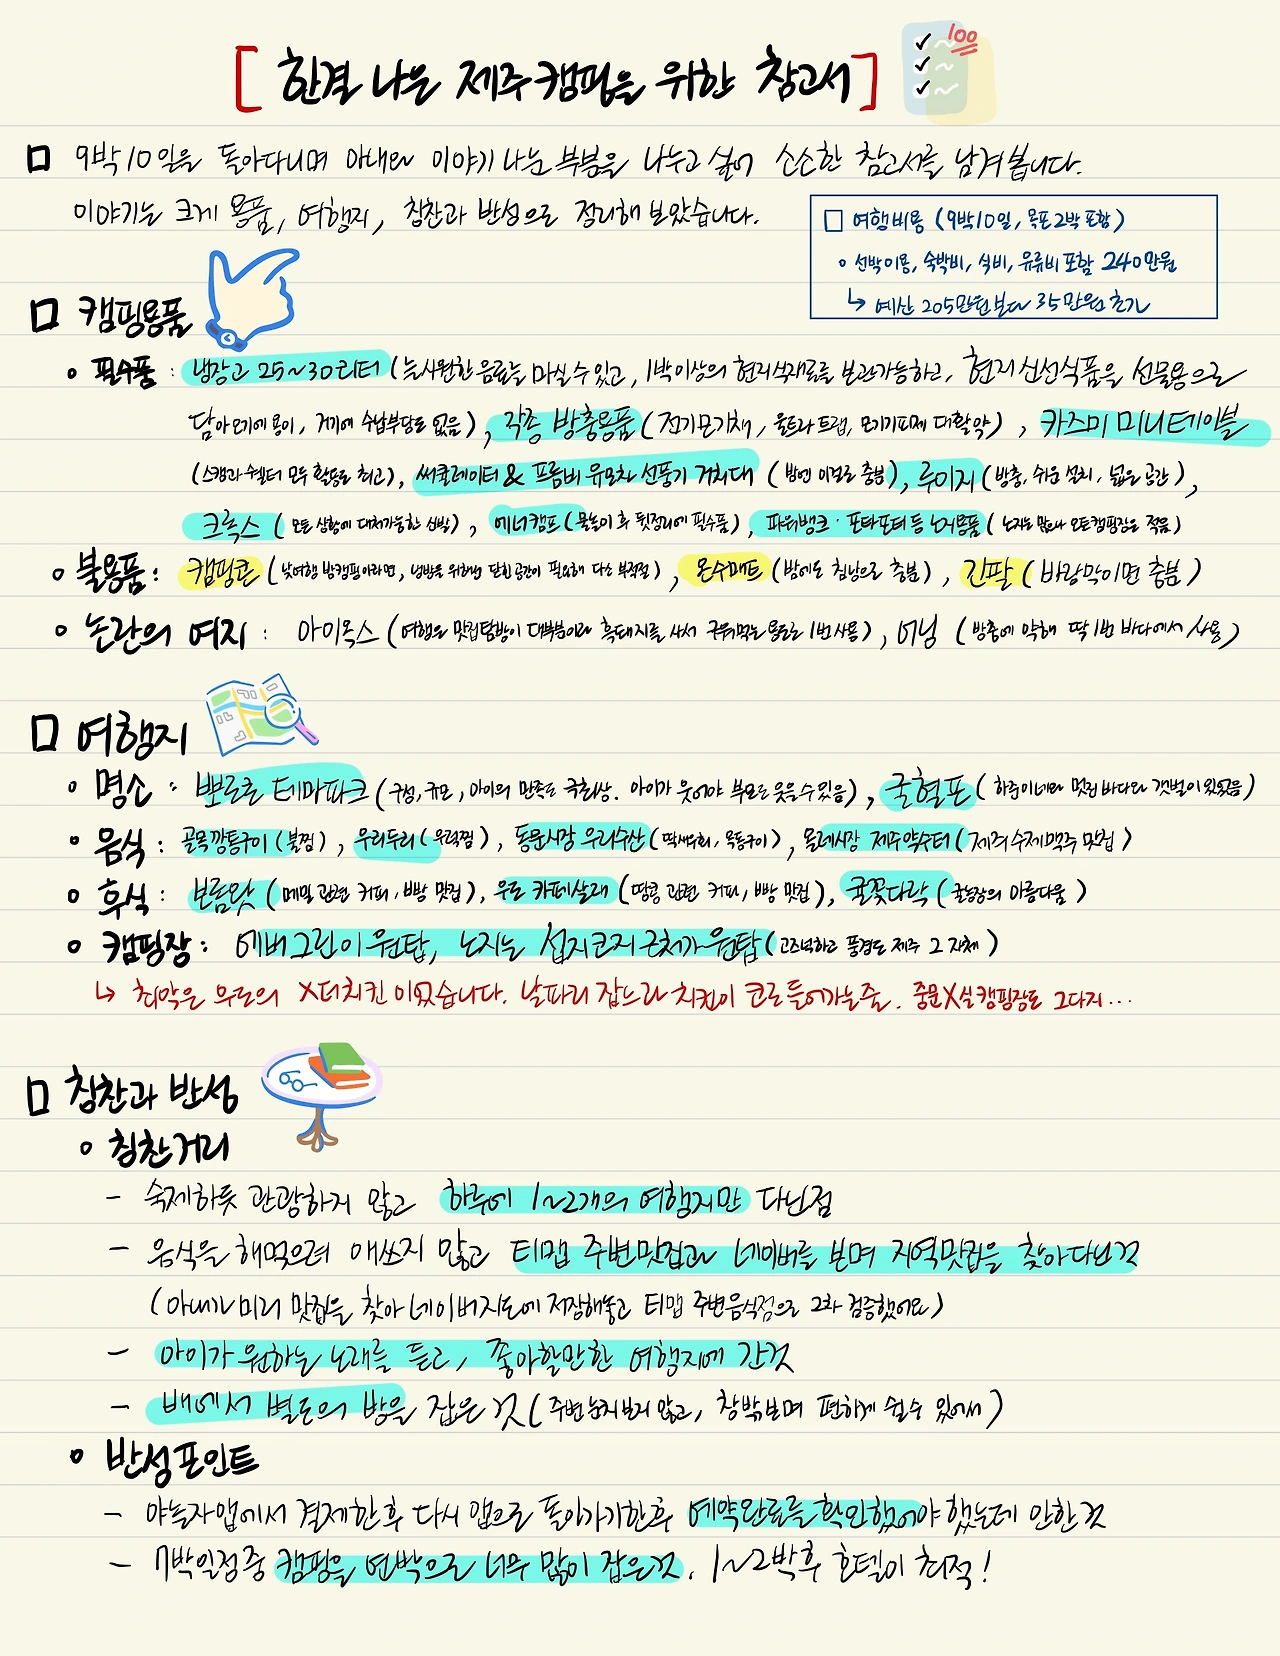 [ 한결 나은 제주캠핑을 위한 참고서 ]
100
□ 9박10일을 돌아다니며 아내와 이야기 나눈 부분을 나누고 싶어 소소한 참고서를 남겨봅니다.
이야기는 크게 용품, 여행지, 칭찬과 반성으로 정리해 보았습니다.
□ 여행비용 (9박10일, 목포2박 포함)
• 선박이용, 숙박비, 식비, 유류비 포함 240만원
↳ 예산 205만원보다 35만원 초과
□ 캠핑용품
• 필수품 : 냉장고 25~30리터 (늘 시원한 음료를 마실 수 있고, 1박이상의 현지식재료를 보관가능하고, 현지 신선식품을 선물용으로
담아오기에 용이, 거기에 수납부담도 없음), 각종 방충용품 (전기모기채, 울트라 트랩, 모기기피제 대활약), 카즈미 미니테이블
(스캠과 쉘터 모두 활용도 최고), 써큘레이터 & 프롬비 유모차 선풍기 거치대 (밤엔 이걸로 충분), 루이지 (방충, 쉬운 설치, 넓은 공간),
크록스 (모든 상황에 대처가능한 신발), 에너캠프 (물놀이 후 뒷정리에 필수품), 파워뱅크·포타포티 등 노지용품 (노지는 많으나 오토캠핑장은 적음)
• 불용품 : 캠핑콘 (낮여행 밤캠핑이라면, 냉방을 위해선 닫힌 공간이 필요해 다소 부적절), 온수매트 (밤에도 침낭으로 충분), 긴팔 (바람막이면 충분)
• 논란의 여지 : 아이옥스 (여행은 맛집탐방이 대부분이라 흑돼지를 사서 구워먹는 용도로 1번 사용), 어닝 (방충에 약해 딱 1번 바다에서 사용)
□ 여행지
• 명소 : 뽀로로 테마파크 (구성, 규모, 아이의 만족도 극최상. 아이가 웃어야 부모도 웃을 수 있음), 국혈포 (하준이네와 멋진 바다와 갯벌이 있었음)
• 음식 : 골목깡통구이 (불찜), 우리두리 (우럭찜), 동문시장 우리수산 (딱새우회, 옥돔구이), 올레시장 제주약수터 (제주 수제맥주 맛집)
• 후식 : 보롬왓 (메밀 관련 커피, 빵 맛집), 우도 카페살레 (땅콩 관련 커피, 빵 맛집), 귤꽃다락 (귤농장의 아름다움)
• 캠핑장 : 에버그린이 원탑, 노지는 섭지코지 근처가 원탑 (고즈넉하고 풍경도 제주 그 자체)
↳ 최악은 우도의 X더치킨이었습니다. 날파리 잡느라 치킨이 코로 들어가는줄. 중문X실캠핑장도 그다지...
□ 칭찬과 반성
• 칭찬거리
- 숙제하듯 관광하지 않고 하루에 1~2개의 여행지만 다닌점
- 음식을 해먹으려 애쓰지 않고 티맵 주변맛집과 네이버를 보며 지역맛집을 찾아다닌것
(아내가 미리 맛집을 찾아 네이버지도에 저장해놓고 티맵 주변음식점으로 2차 검증했어요)
- 아이가 원하는 노래를 듣고, 좋아할만한 여행지에 간것
- 배에서 별도의 방을 잡은 것 (주변 눈치보지 않고, 창밖보며 편하게 쉴수 있어서)
• 반성포인트
- 야놀자앱에서 결제한 후 다시 앱으로 돌아가기한후 예약완료를 확인했어야 했는데 안한것
- 7박일정중 캠핑을 연박으로 너무 많이 잡은것. 1~2박후 호텔이 최적!